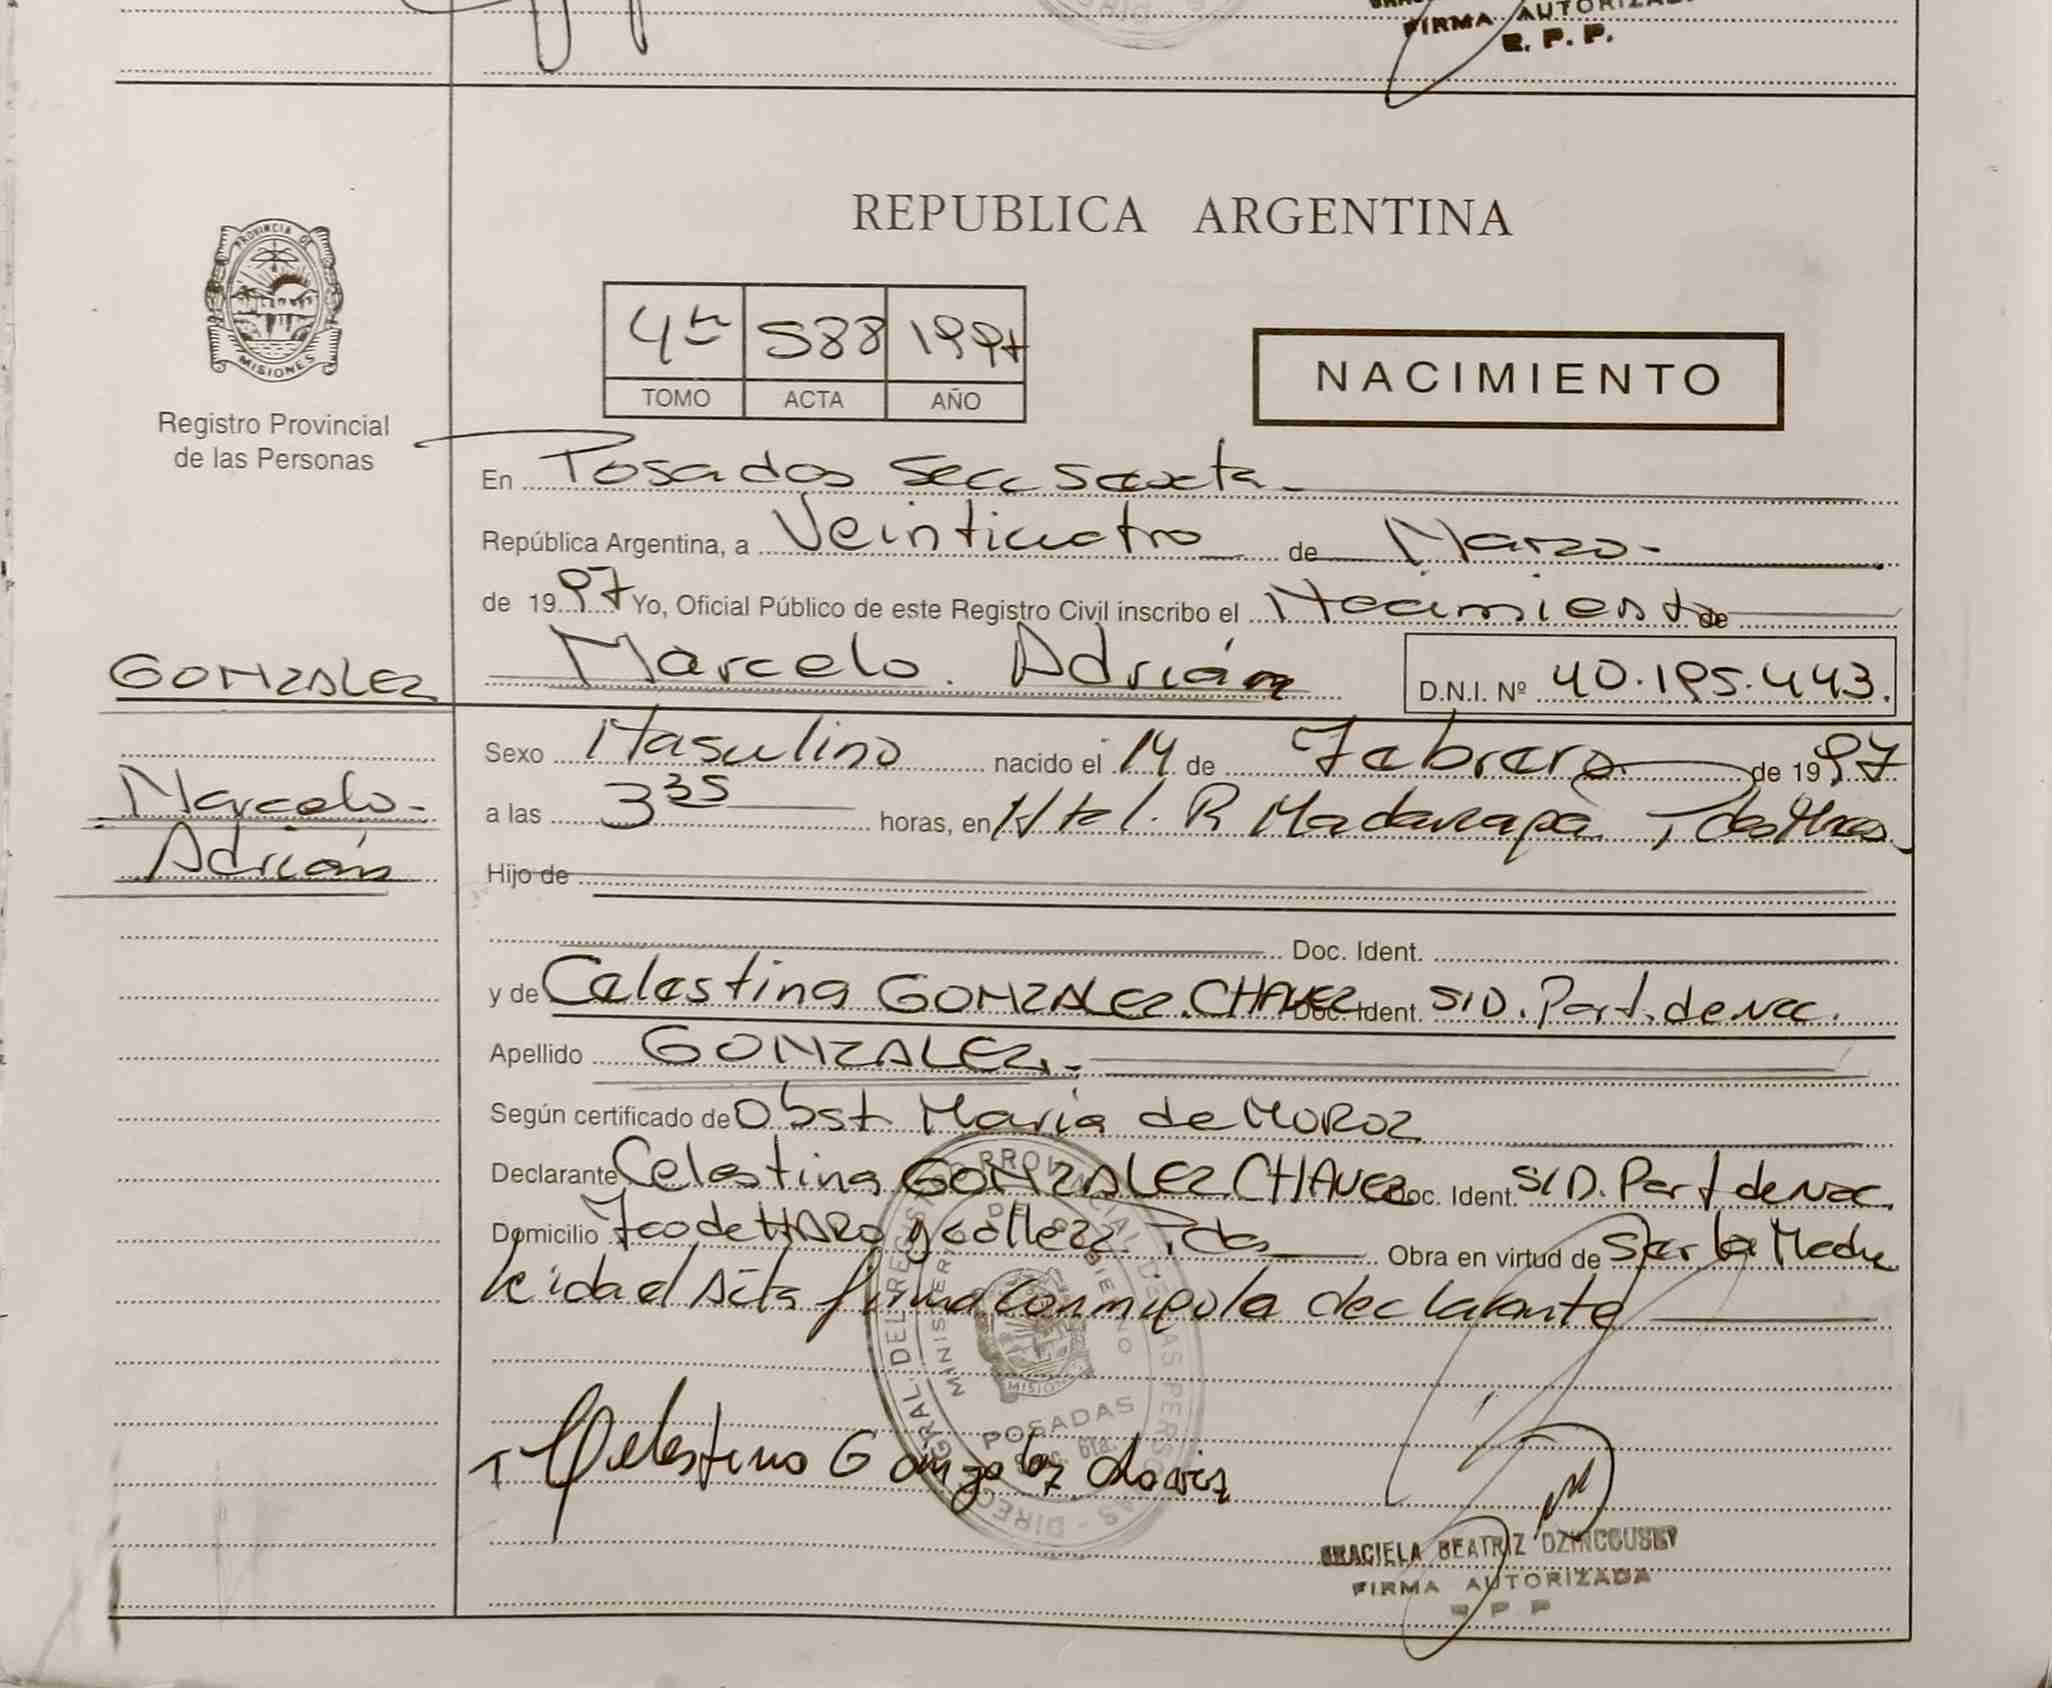 FIRMA AUTORIZADA
R. P. P.
PROVINCIA DE
MISIONES
Registro Provincial
de las Personas
REPUBLICA ARGENTINA
4to 588 1997
TOMO ACTA AÑO
NACIMIENTO
En Posadas Secc Sexta
República Argentina, a Veinticuatro de Marzo
de 1997 Yo, Oficial Público de este Registro Civil inscribo el Nacimiento de
GONZALEZ Marcelo Adrián D.N.I. Nº 40.195.443.
Sexo Masculino nacido el 14 de Febrero de 1997
Marcelo
Adrián
a las 3 35 horas, en Htal. R Madariaga
Hijo de
Doc. Ident.
y de Celestina GONZALEZ CHAVEZ Doc. Ident. S/D. Part. de nac.
Apellido GONZALEZ.
Según certificado de Obst María de MOROZ
Declarante Celestina GONZALEZ CHAVEZ Doc. Ident. S/D. Part de nac.
Domicilio Fco de HARO y calle Pdas Obra en virtud de Ser la Madre
leida el acta firma conmigo la declarante
DIREC. GRAL. DEL REGISTRO PROVINCIAL DE LAS PERSONAS
MINISTERIO DE GOBIERNO
MISIONES
POSADAS
Secc. 6ta.
Celestina Gonzalez Chavez
GRACIELA BEATRIZ
FIRMA AUTORIZADA
R P P